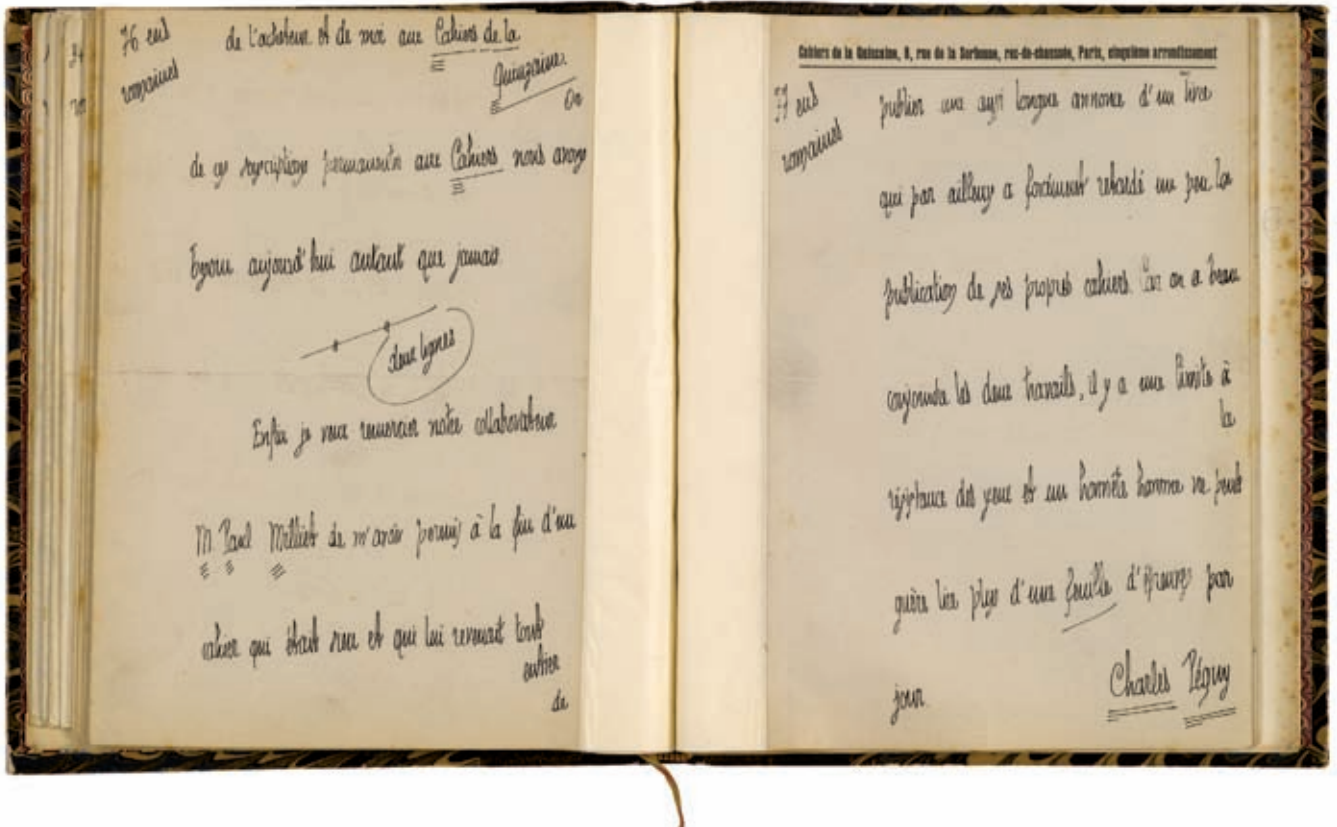 76 en
romaines
de l'acheteur et de moi aux Cahiers de la
Quinzaine.
On
de ces souscriptions permanentes aux Cahiers nous avons
besoin aujourd'hui autant que jamais.
deux lignes
Enfin je veux remercier notre collaborateur
M. Paul Milliet de m'avoir permis à la fin d'un
cahier qui était sien et qui lui revenait tout
entier
de
Cahiers de la Quinzaine, 8, rue de la Sorbonne, rez-de-chaussée, Paris, cinquième arrondissement
77
romaines
publier une aussi longue annonce d'un livre
qui par ailleurs a forcément retardé un peu la
publication de ses propres cahiers. Car on a beau
conjoindre les deux travails, il y a une limite à
la
résistance des yeux et un honnête homme ne peut
guère lire plus d'une feuille d'épreuves par
jour.
Charles Péguy